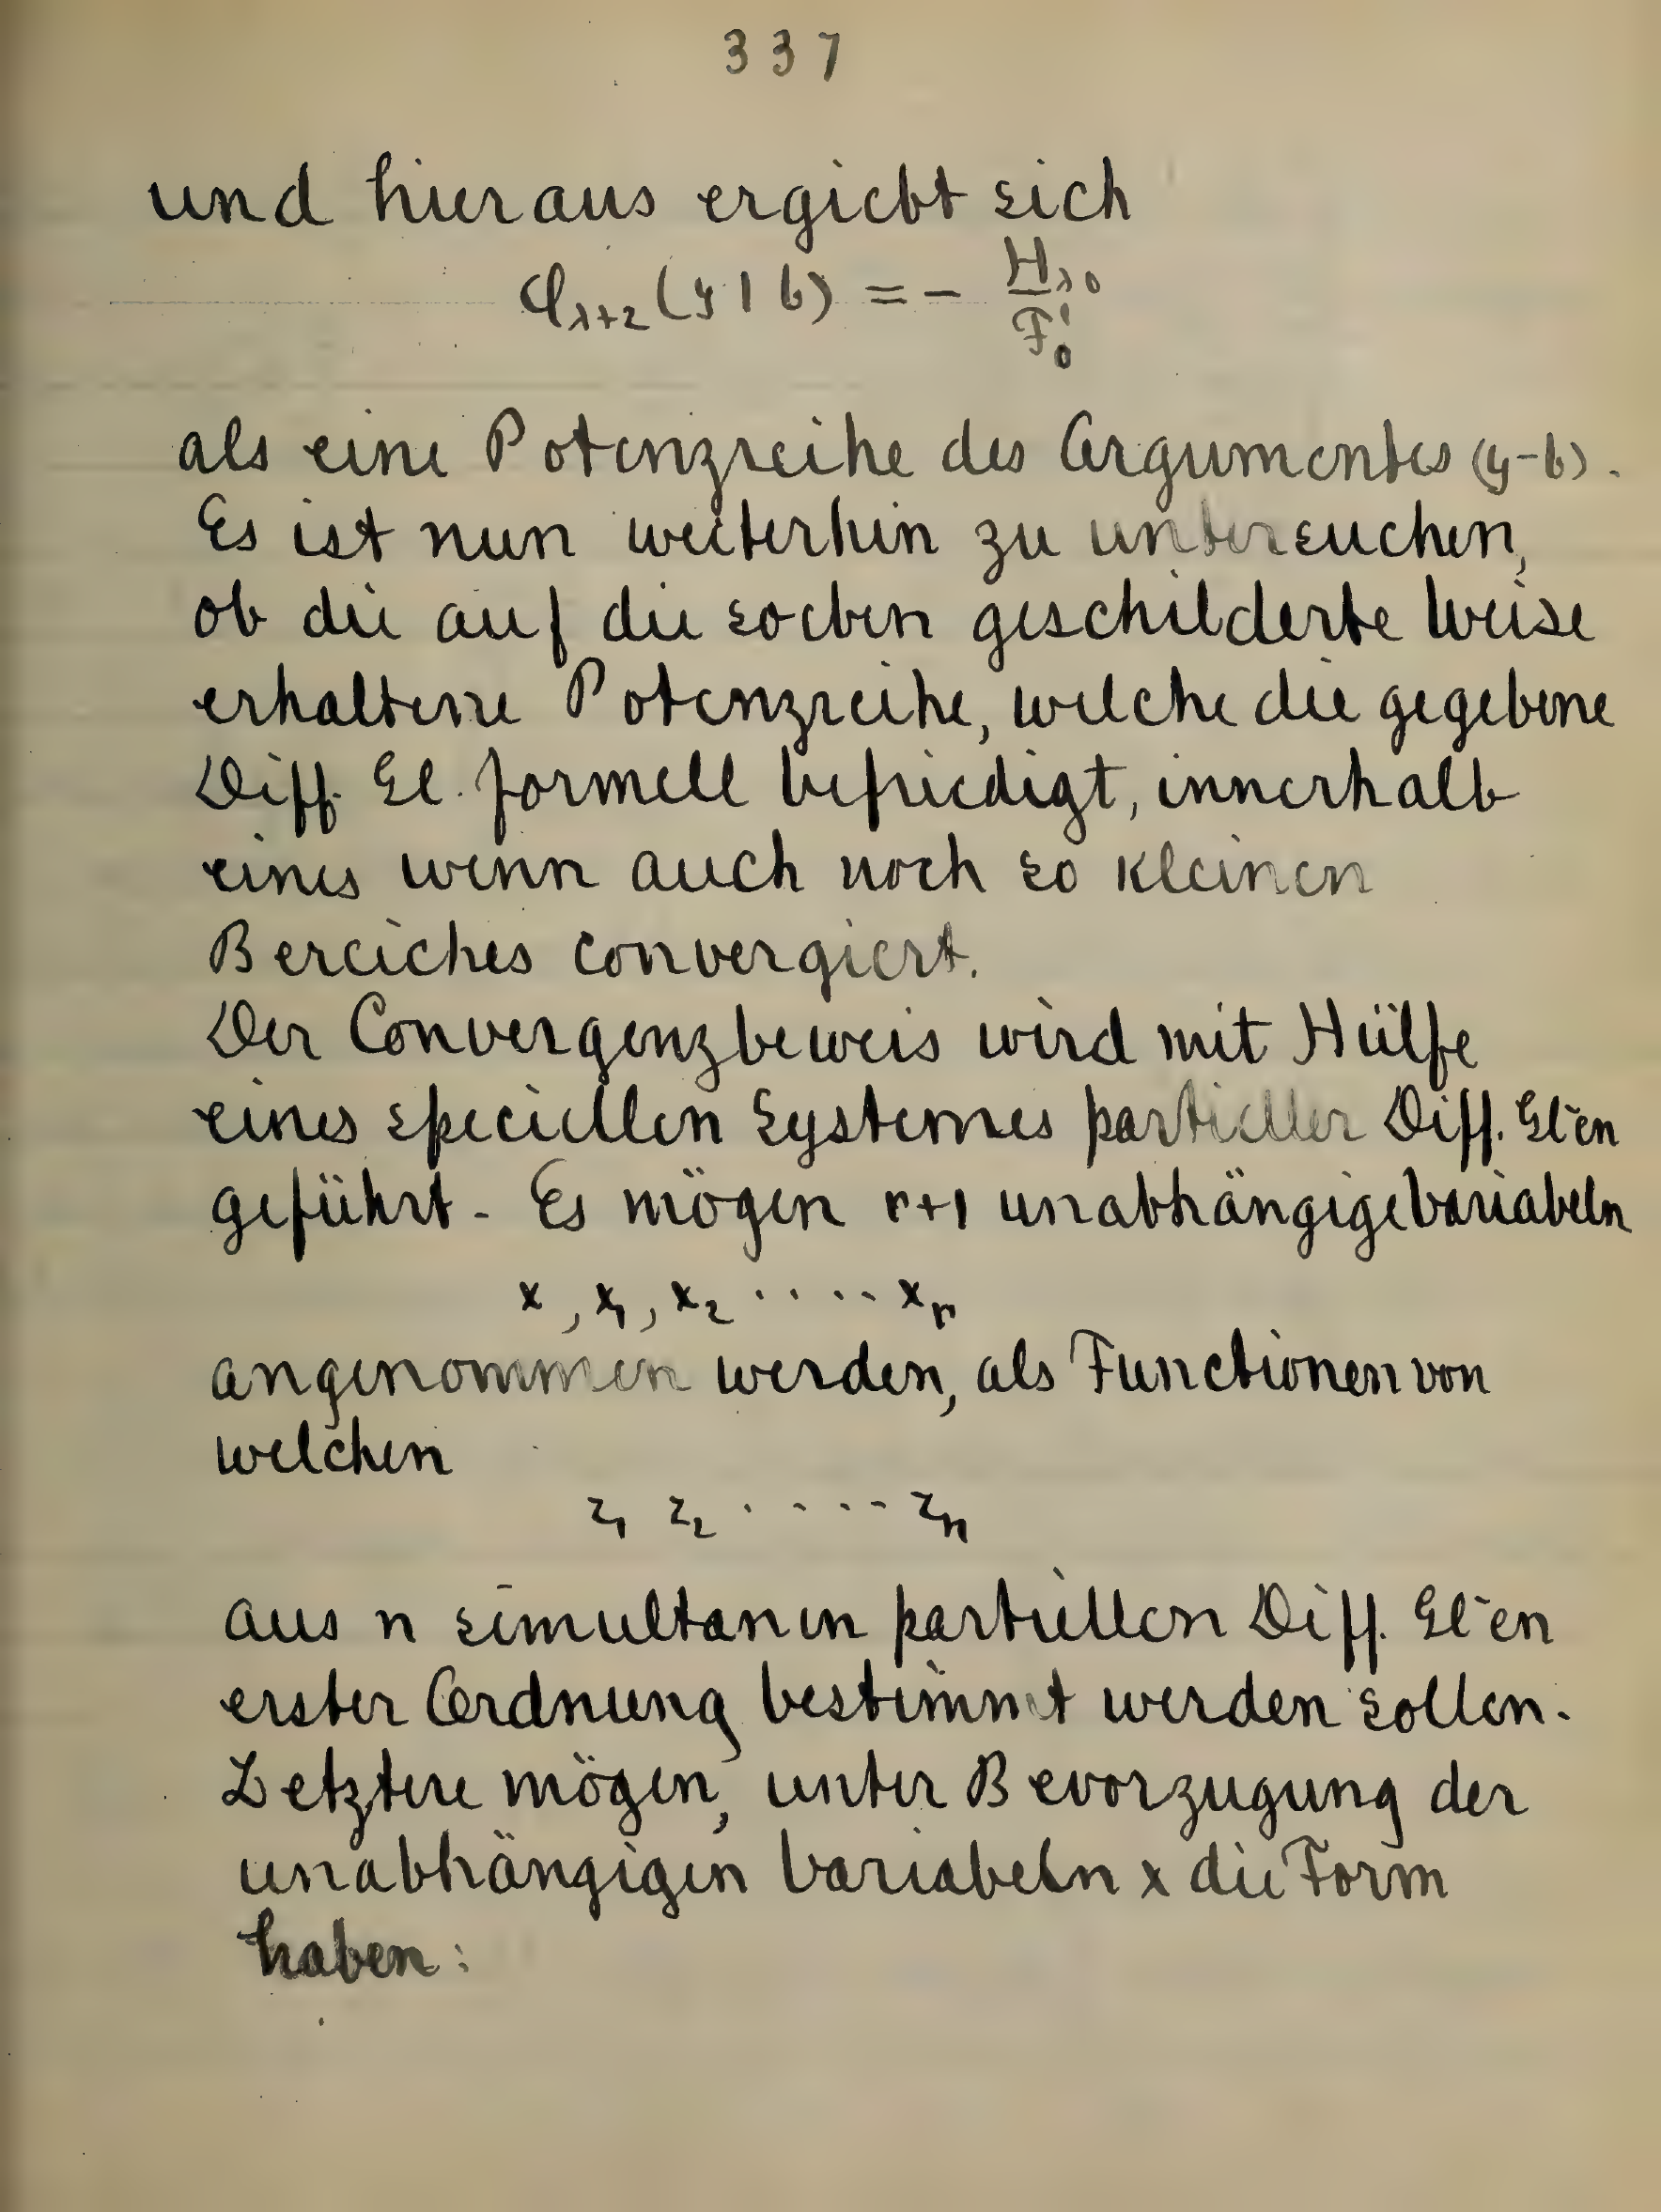 337
und hieraus ergiebt sich
φ_{λ+2}(y|b) = - H_{λ0} / F'_0
als eine Potenzreihe des Argumentes (y-b).
Es ist nun weiterhin zu untersuchen,
ob die auf die soeben geschilderte Weise
erhaltene Potenzreihe, welche die gegebene
Diff. Gl. formell befriedigt, innerhalb
eines wenn auch noch so kleinen
Bereiches convergiert.
Der Convergenzbeweis wird mit Hülfe
eines speciellen Systemes partieller Diff. Gl'en
geführt. Es mögen r+1 unabhängige Variabeln
x, x_1, x_2 ..... x_r
angenommen werden, als Functionen von
welchen
z_1 z_2 ..... z_n
aus n simultanen partiellen Diff. Gl'en
erster Ordnung bestimmt werden sollen.
Letztere mögen, unter Bevorzugung der
unabhängigen Variabeln x die Form
haben: